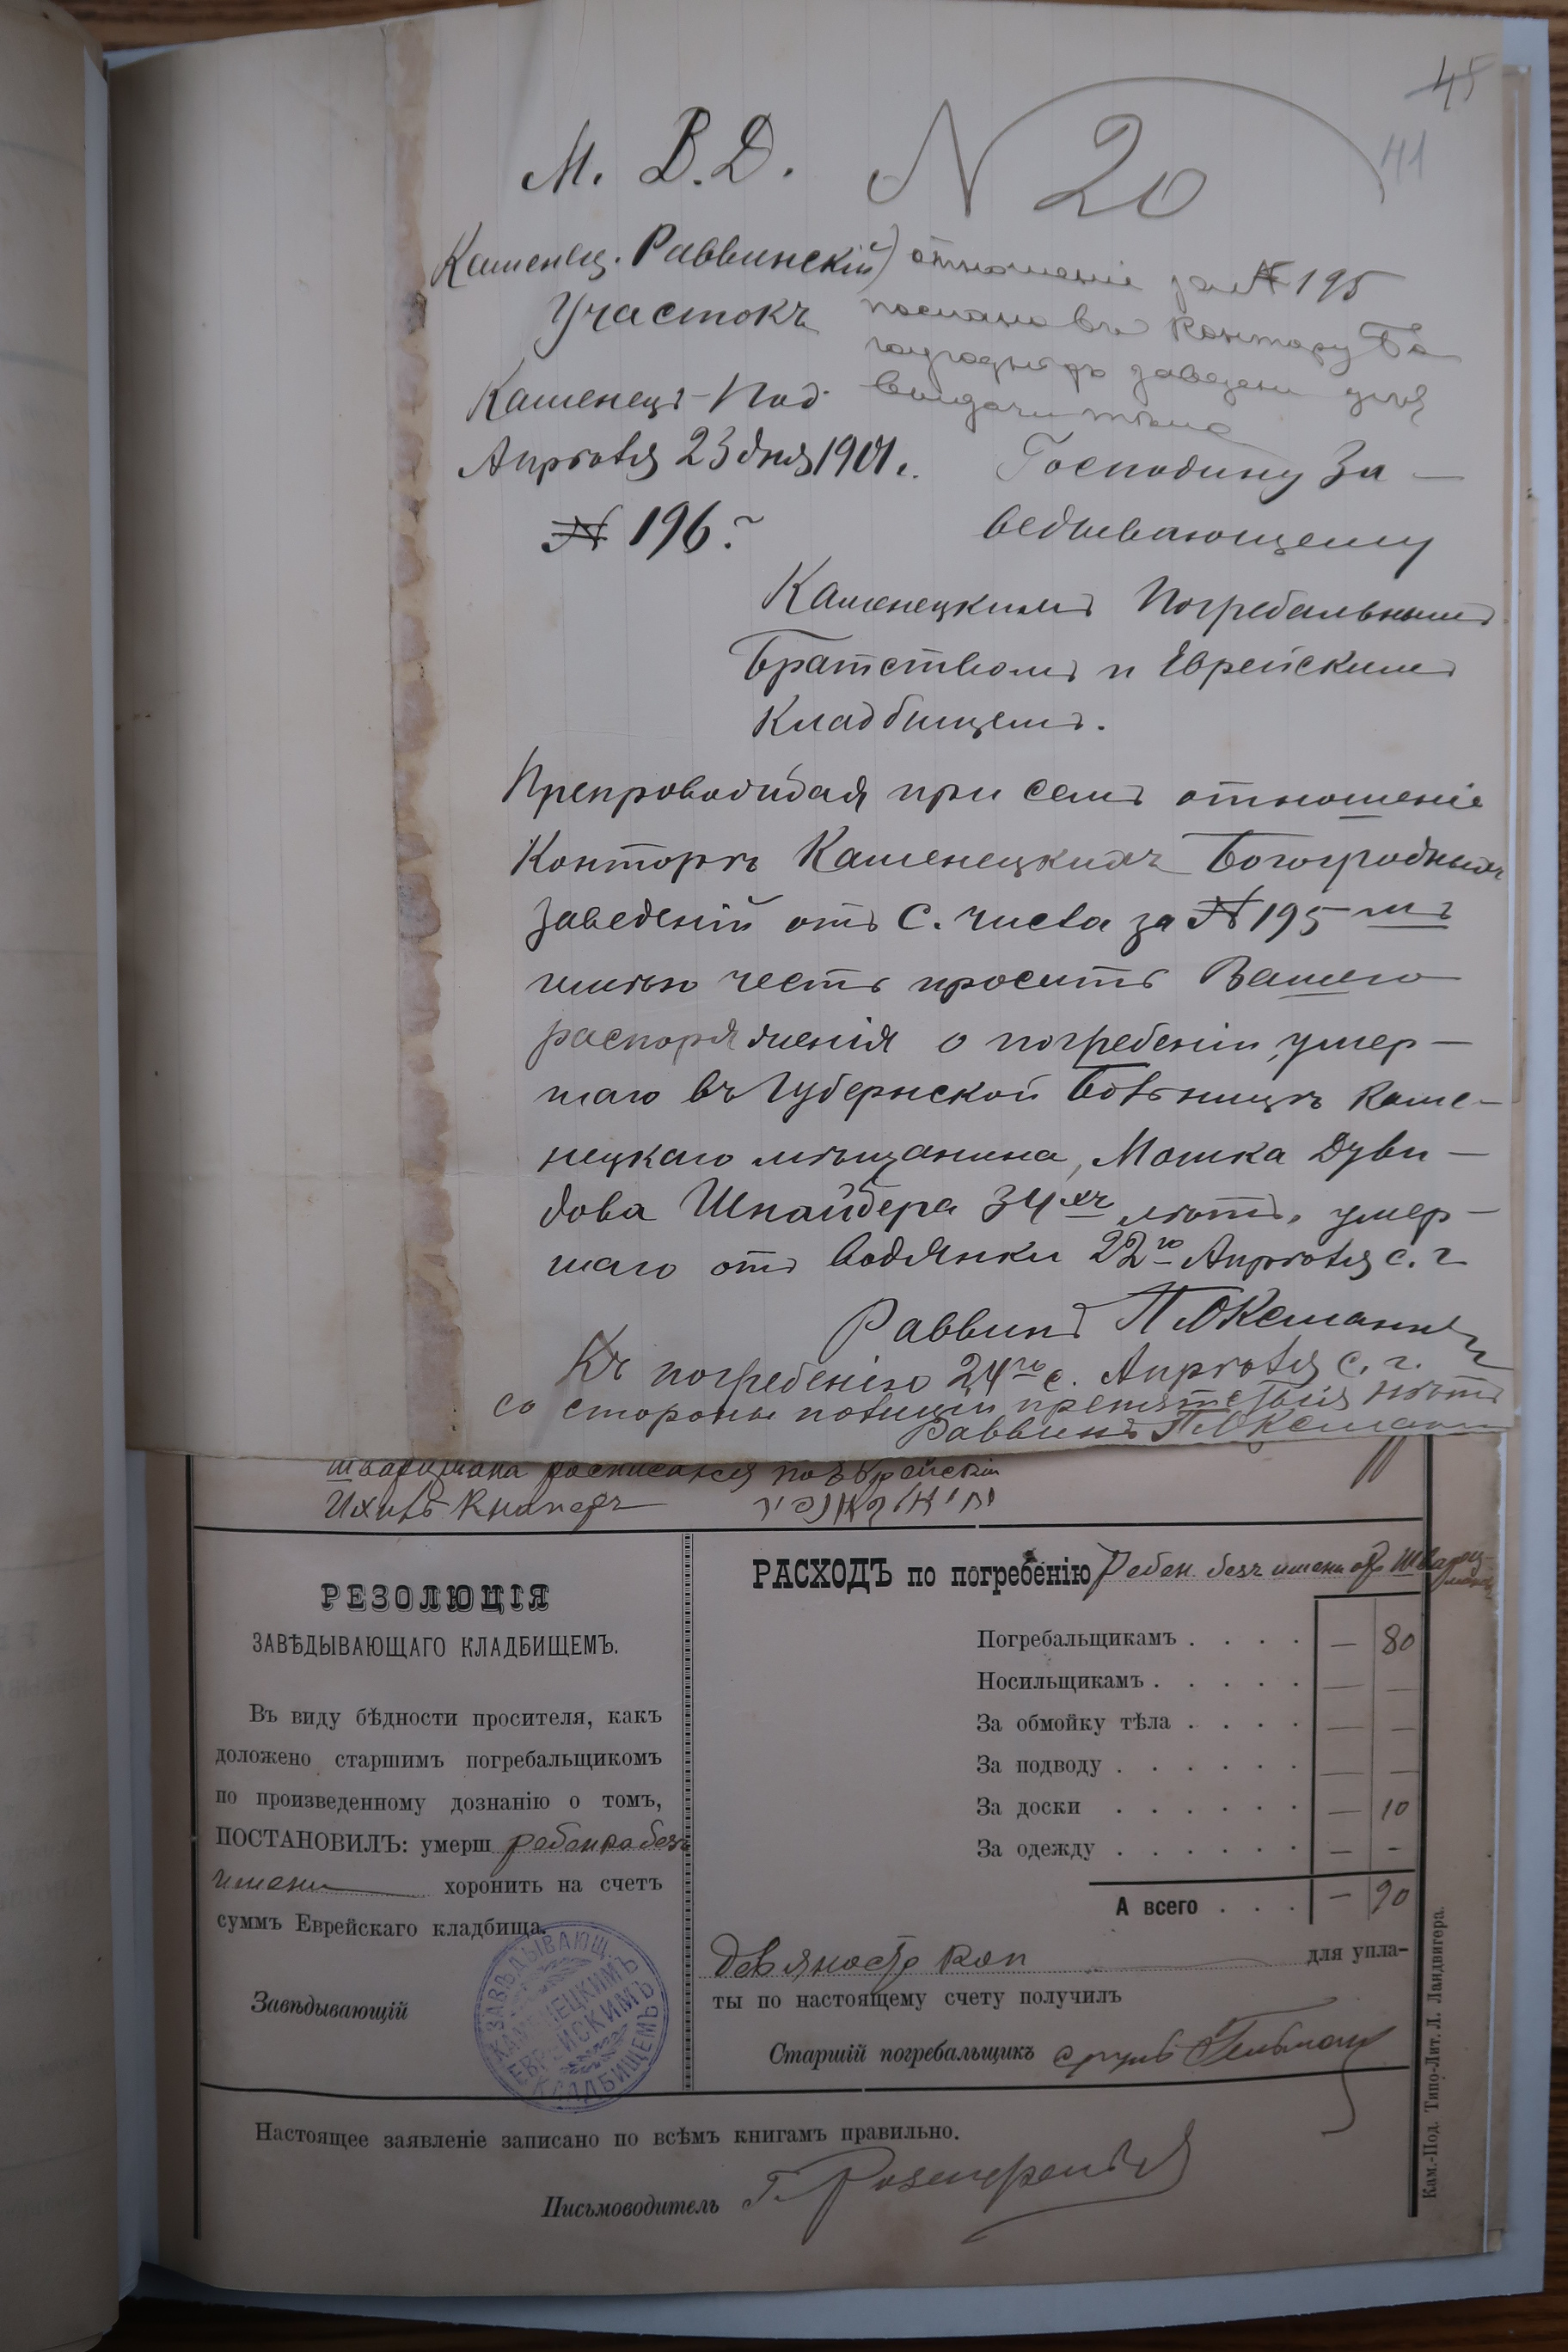 45
41
М. В. Д. N 20
Каменец. Раввинскій
Участокъ
отношеніе за № 195
послано въ Контору Бо
гоугодныхъ заведен для
выдачи тѣла
Каменецъ-Под.
Апрѣля 23 дня 1901 г.
№ 196.
Господину За-
вѣдывающему
Каменецкимъ Погребальнымъ
Братствомъ и Еврейскимъ
Кладбищемъ.
Препровождая при семъ отношеніе
Конторѣ Каменецкихъ Богоугодныхъ
Заведеній отъ с. числа за № 195-мъ
имѣю честь просить Вашего
распоряженія о погребеніи умер-
шаго въ Губернской Больницѣ Каме-
нецкаго мѣщанина, Мошка Дуви-
дова Шнайдера 34хъ лѣтъ, умер-
шаго отъ водянки 22го Апрѣля с. г.
Раввинъ П. Оксманъ
Къ погребенію 24го с. Апрѣля с. г.
со стороны полиціи препятствія нѣтъ
Раввинъ П. Оксманъ
Шварцмана росписался по Еврейски
Ихиль Кнаперъ
РЕЗОЛЮЦІЯ
ЗАВѢДЫВАЮЩАГО КЛАДБИЩЕМЪ.
Въ виду бѣдности просителя, какъ
доложено старшимъ погребальщикомъ
по произведенному дознанію о томъ,
ПОСТАНОВИЛЪ: умерш ребенка безъ
имени хоронить на счетъ
суммъ Еврейскаго кладбища.
Завѣдывающій
ЗАВѢДЫВАЮЩ.
КАМЕНЕЦКИМЪ
ЕВРЕЙСКИМЪ
КЛАДБИЩЕМЪ
РАСХОДЪ по погребенію Ребен. безъ имени отъ Шварц-
мана
Погребальщикамъ . . . . — 80
Носильщикамъ . . . . . — —
За обмойку тѣла . . . . — —
За подводу . . . . . . — —
За доски . . . . . . — 10
За одежду . . . . . . — -
А всего . . . — 90
девяносто коп для упла-
ты по настоящему счету получилъ
Старшій погребальщикъ Сруль Гельман
Настоящее заявленіе записано по всѣмъ книгамъ правильно.
Письмоводитель Г. Розенфельд
Кам.-Под. Типо-Лит. Л. Ландвигера.